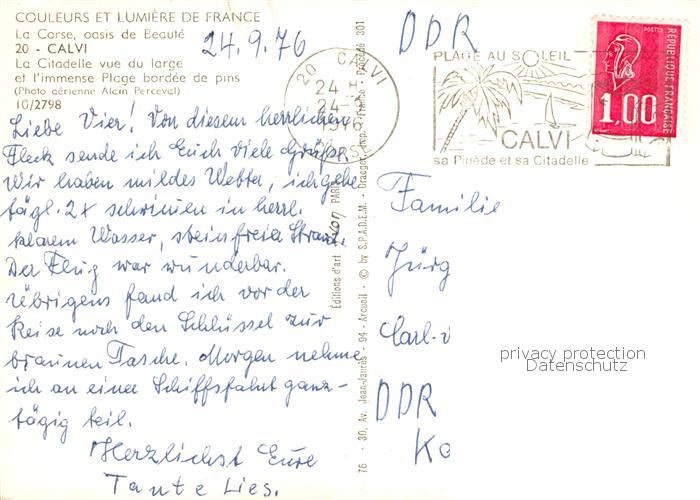 COULEURS ET LUMIÈRE DE FRANCE
La Corse, oasis de Beauté
20 - CALVI
La Citadelle vue du large
et l'immense Plage bordée de pins
(Photo aérienne Alain Perceval)
10/2798
24.9.76
Liebe Vier! Von diesem herrlichen
Fleck sende ich Euch viele Grüße.
Wir haben mildes Wetter, ich gehe
tägl. 2x schwimmen in herrl.
klarem Wasser, steinfreier Strand.
Der Flug war wunderbar.
Übrigens fand ich vor der
Reise noch den Schlüssel zur
braunen Tasche. Morgen nehme
ich an einer Schiffsfahrt ganz-
tägig teil.
Herzlichst Eure
Tante Lies.
Éditions d'art yvon PARIS
76 - 30, Av. Jean-Jaurès - 94 - Arcueil - © by S.P.A.D.E.M. - Draeger, Imp. - France - 301
20 CALVI
24
1976
PLAGE AU SOLEIL
CALVI
sa Pinède et sa Citadelle
POSTES
REPUBLIQUE FRANÇAISE
1.00
DDR
Familie
Jürg
Carl-v
DDR
Ka
privacy protection
Datenschutz